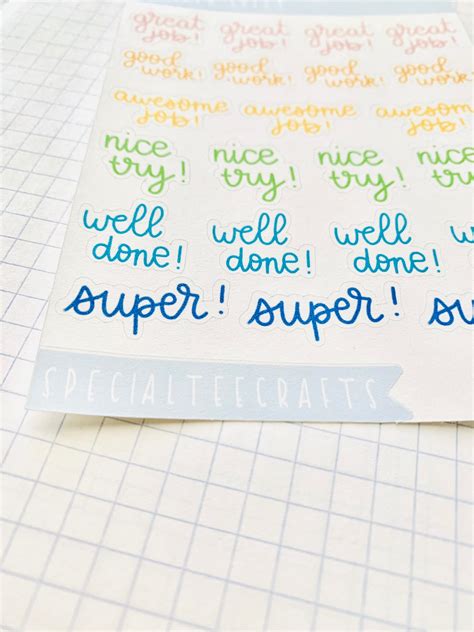 great
job!
great
job!
great
job!
great
job!
good
work!
good
work!
good
work!
good
work!
awesome
job!
awesome
job!
awesome
job!
nice
try!
nice
try!
nice
try!
nice
try
well
done!
well
done!
well
done!
super!
super!
su
SPECIALTEECRAFTS